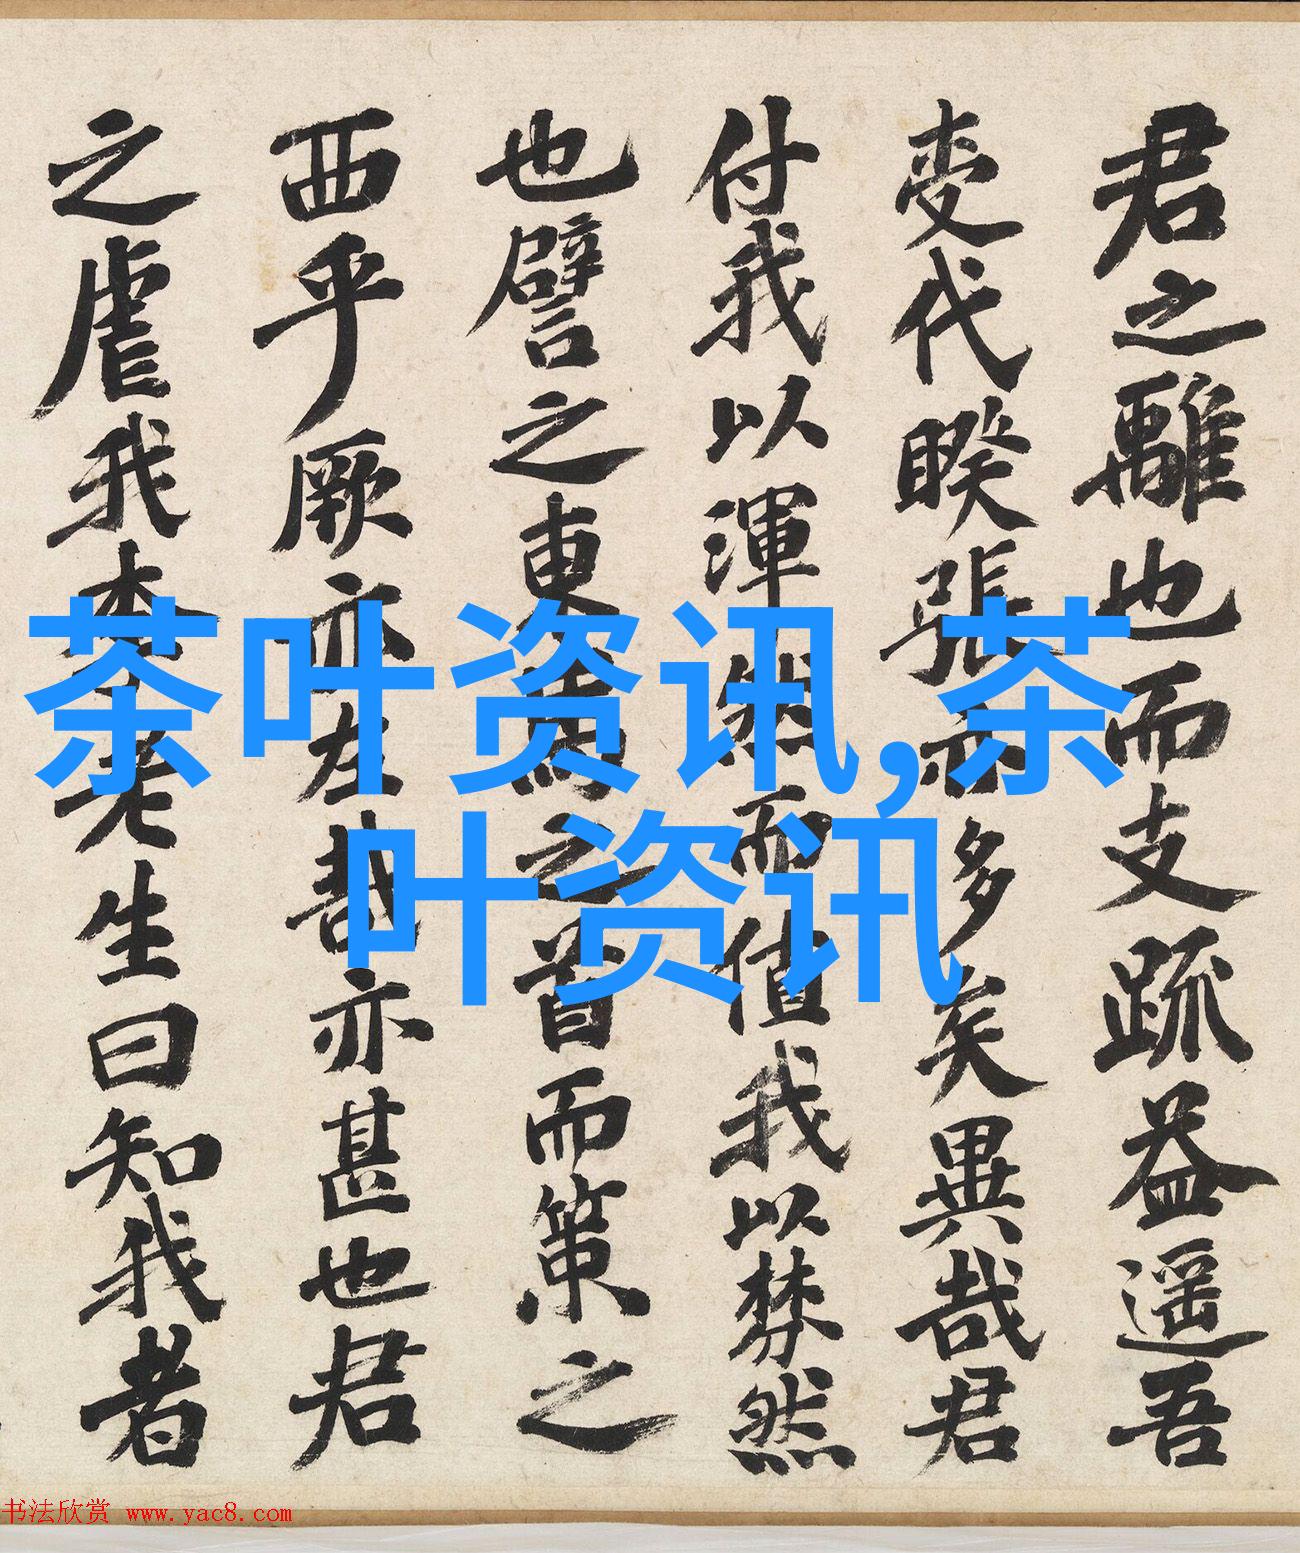 君之離也而支疏益遥吾
代睽張亦多矣異哉君
付我以渾然而值我以棼然
也譬之東馬之首而策之
西乎厥亦左哉亦甚也君
之虐我李老生曰知我者
茶叶资讯,茶
叶资讯
书法欣赏 www.yac8.com